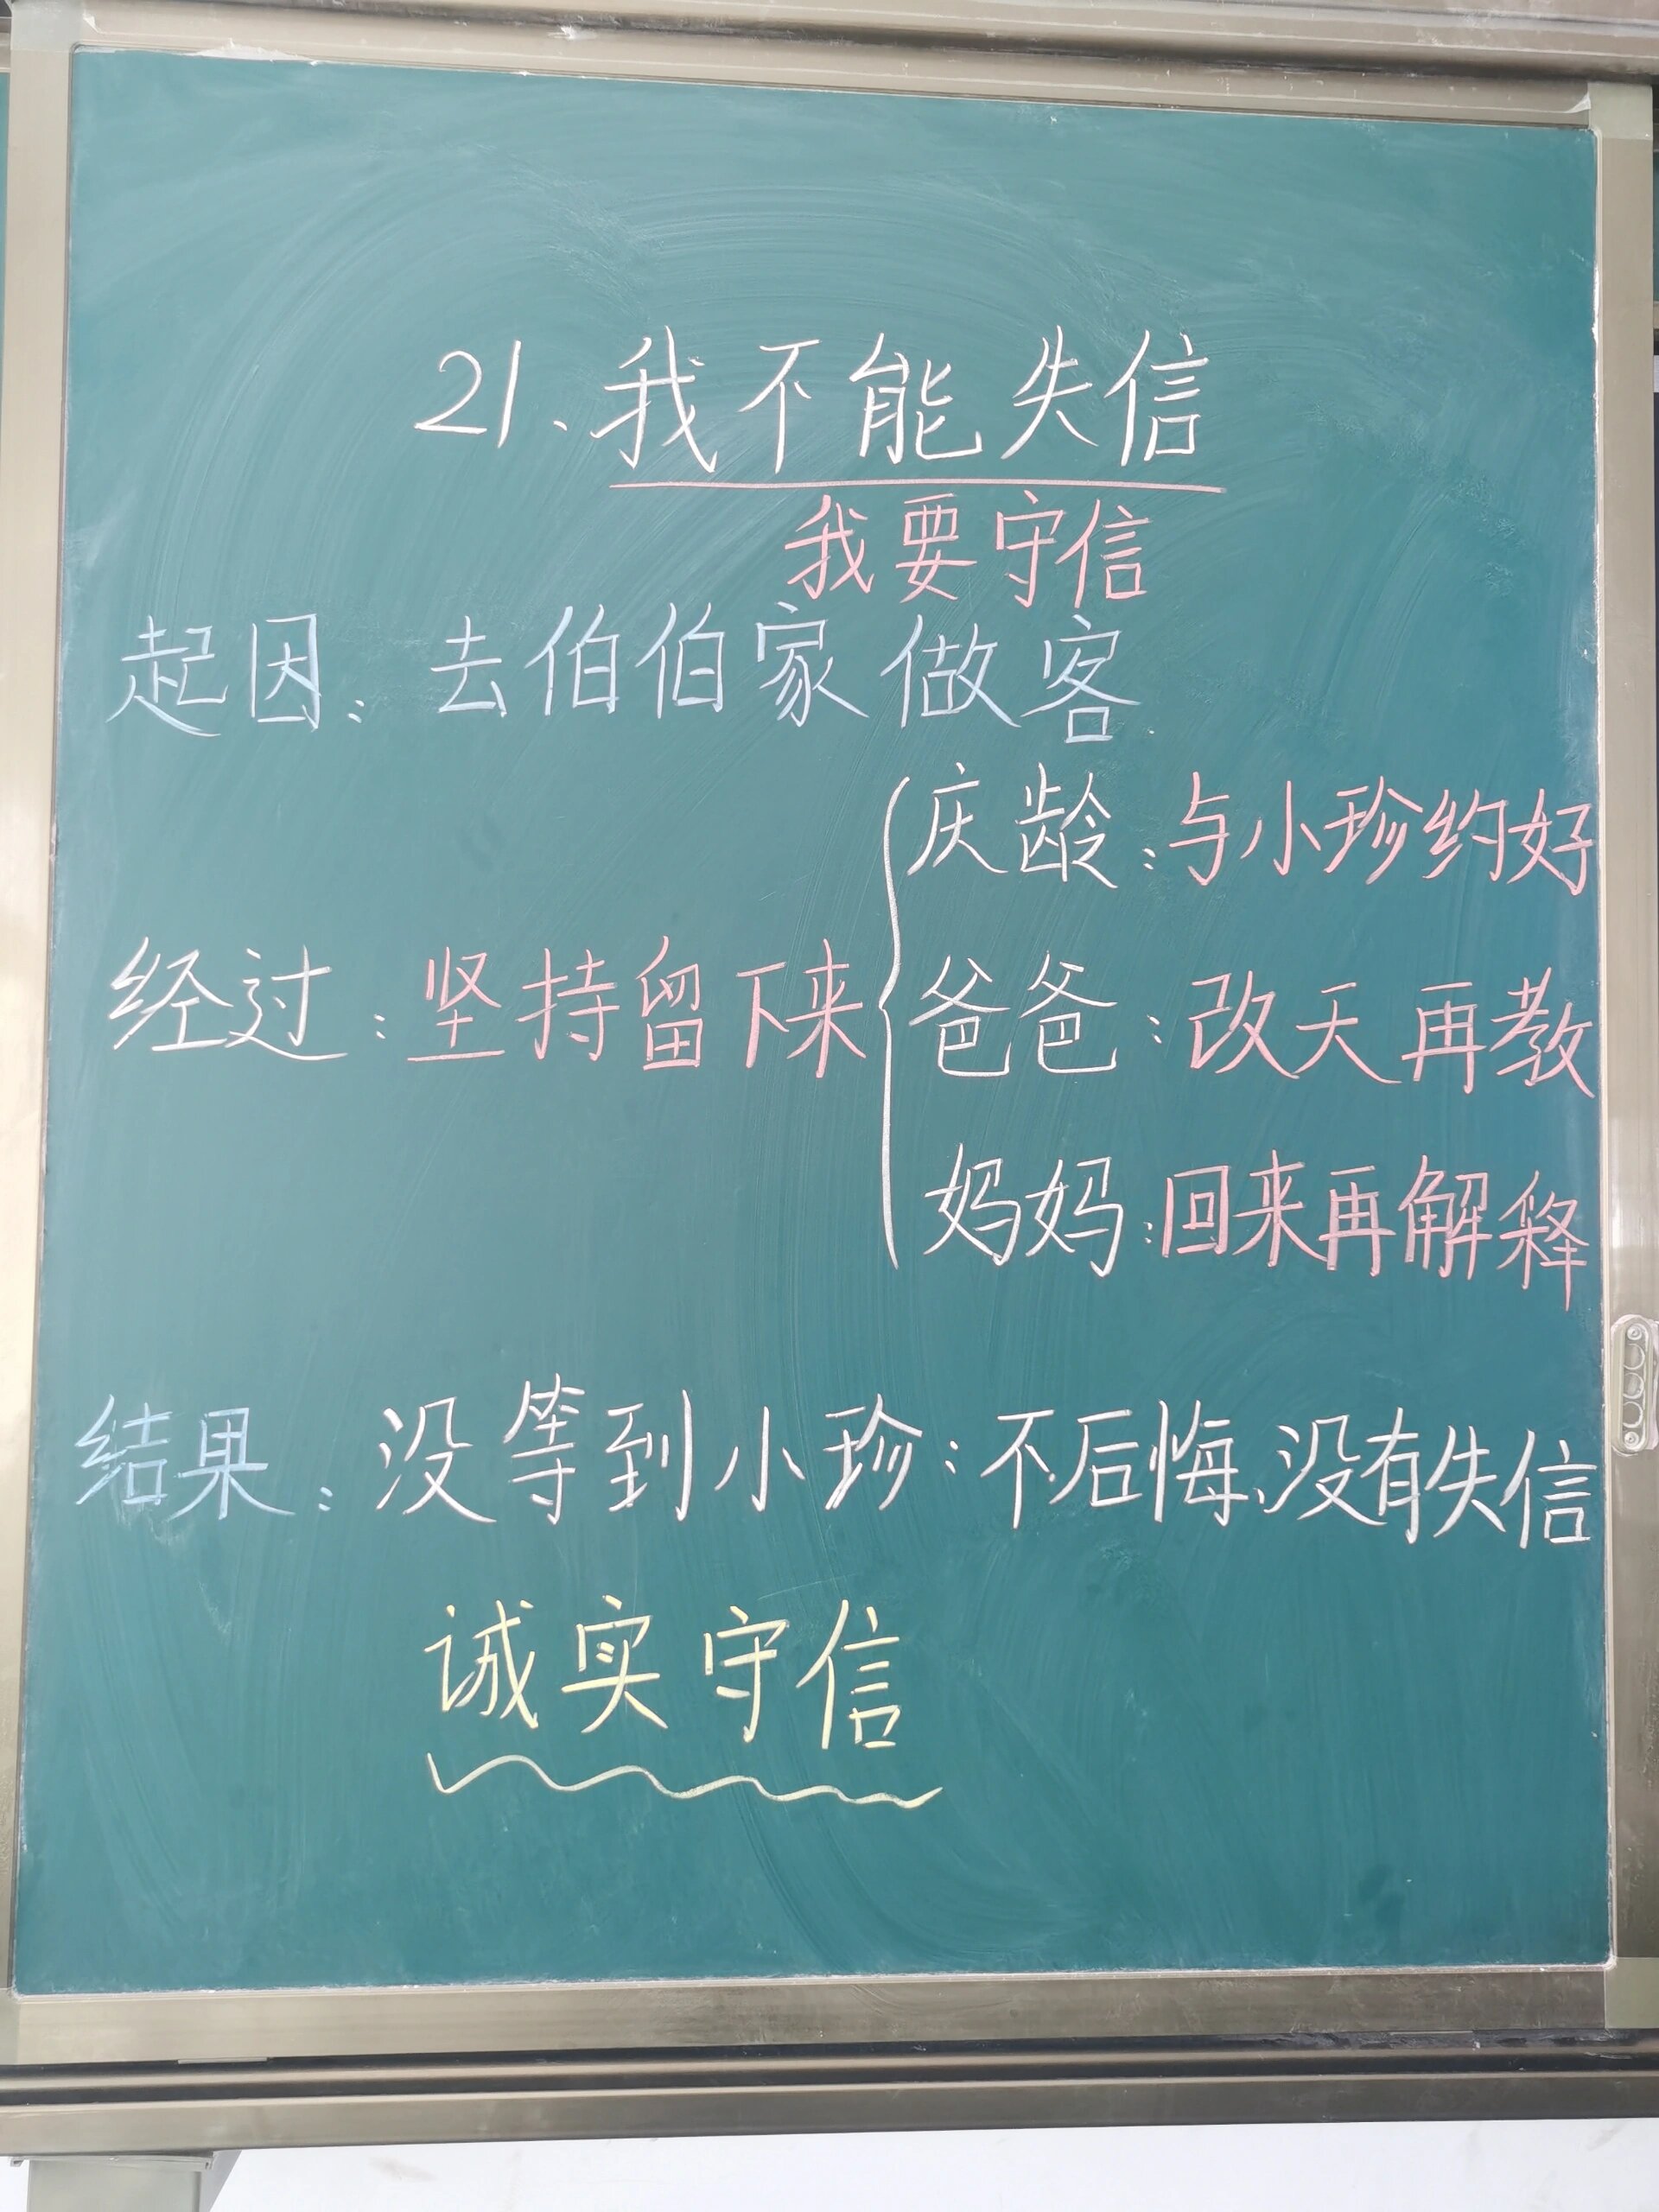 21、我不能失信
我要守信
起因：去伯伯家做客
庆龄：与小珍约好
经过：坚持留下来
爸爸：改天再教
妈妈：回来再解释
结果：没等到小珍：不后悔、没有失信
诚实守信